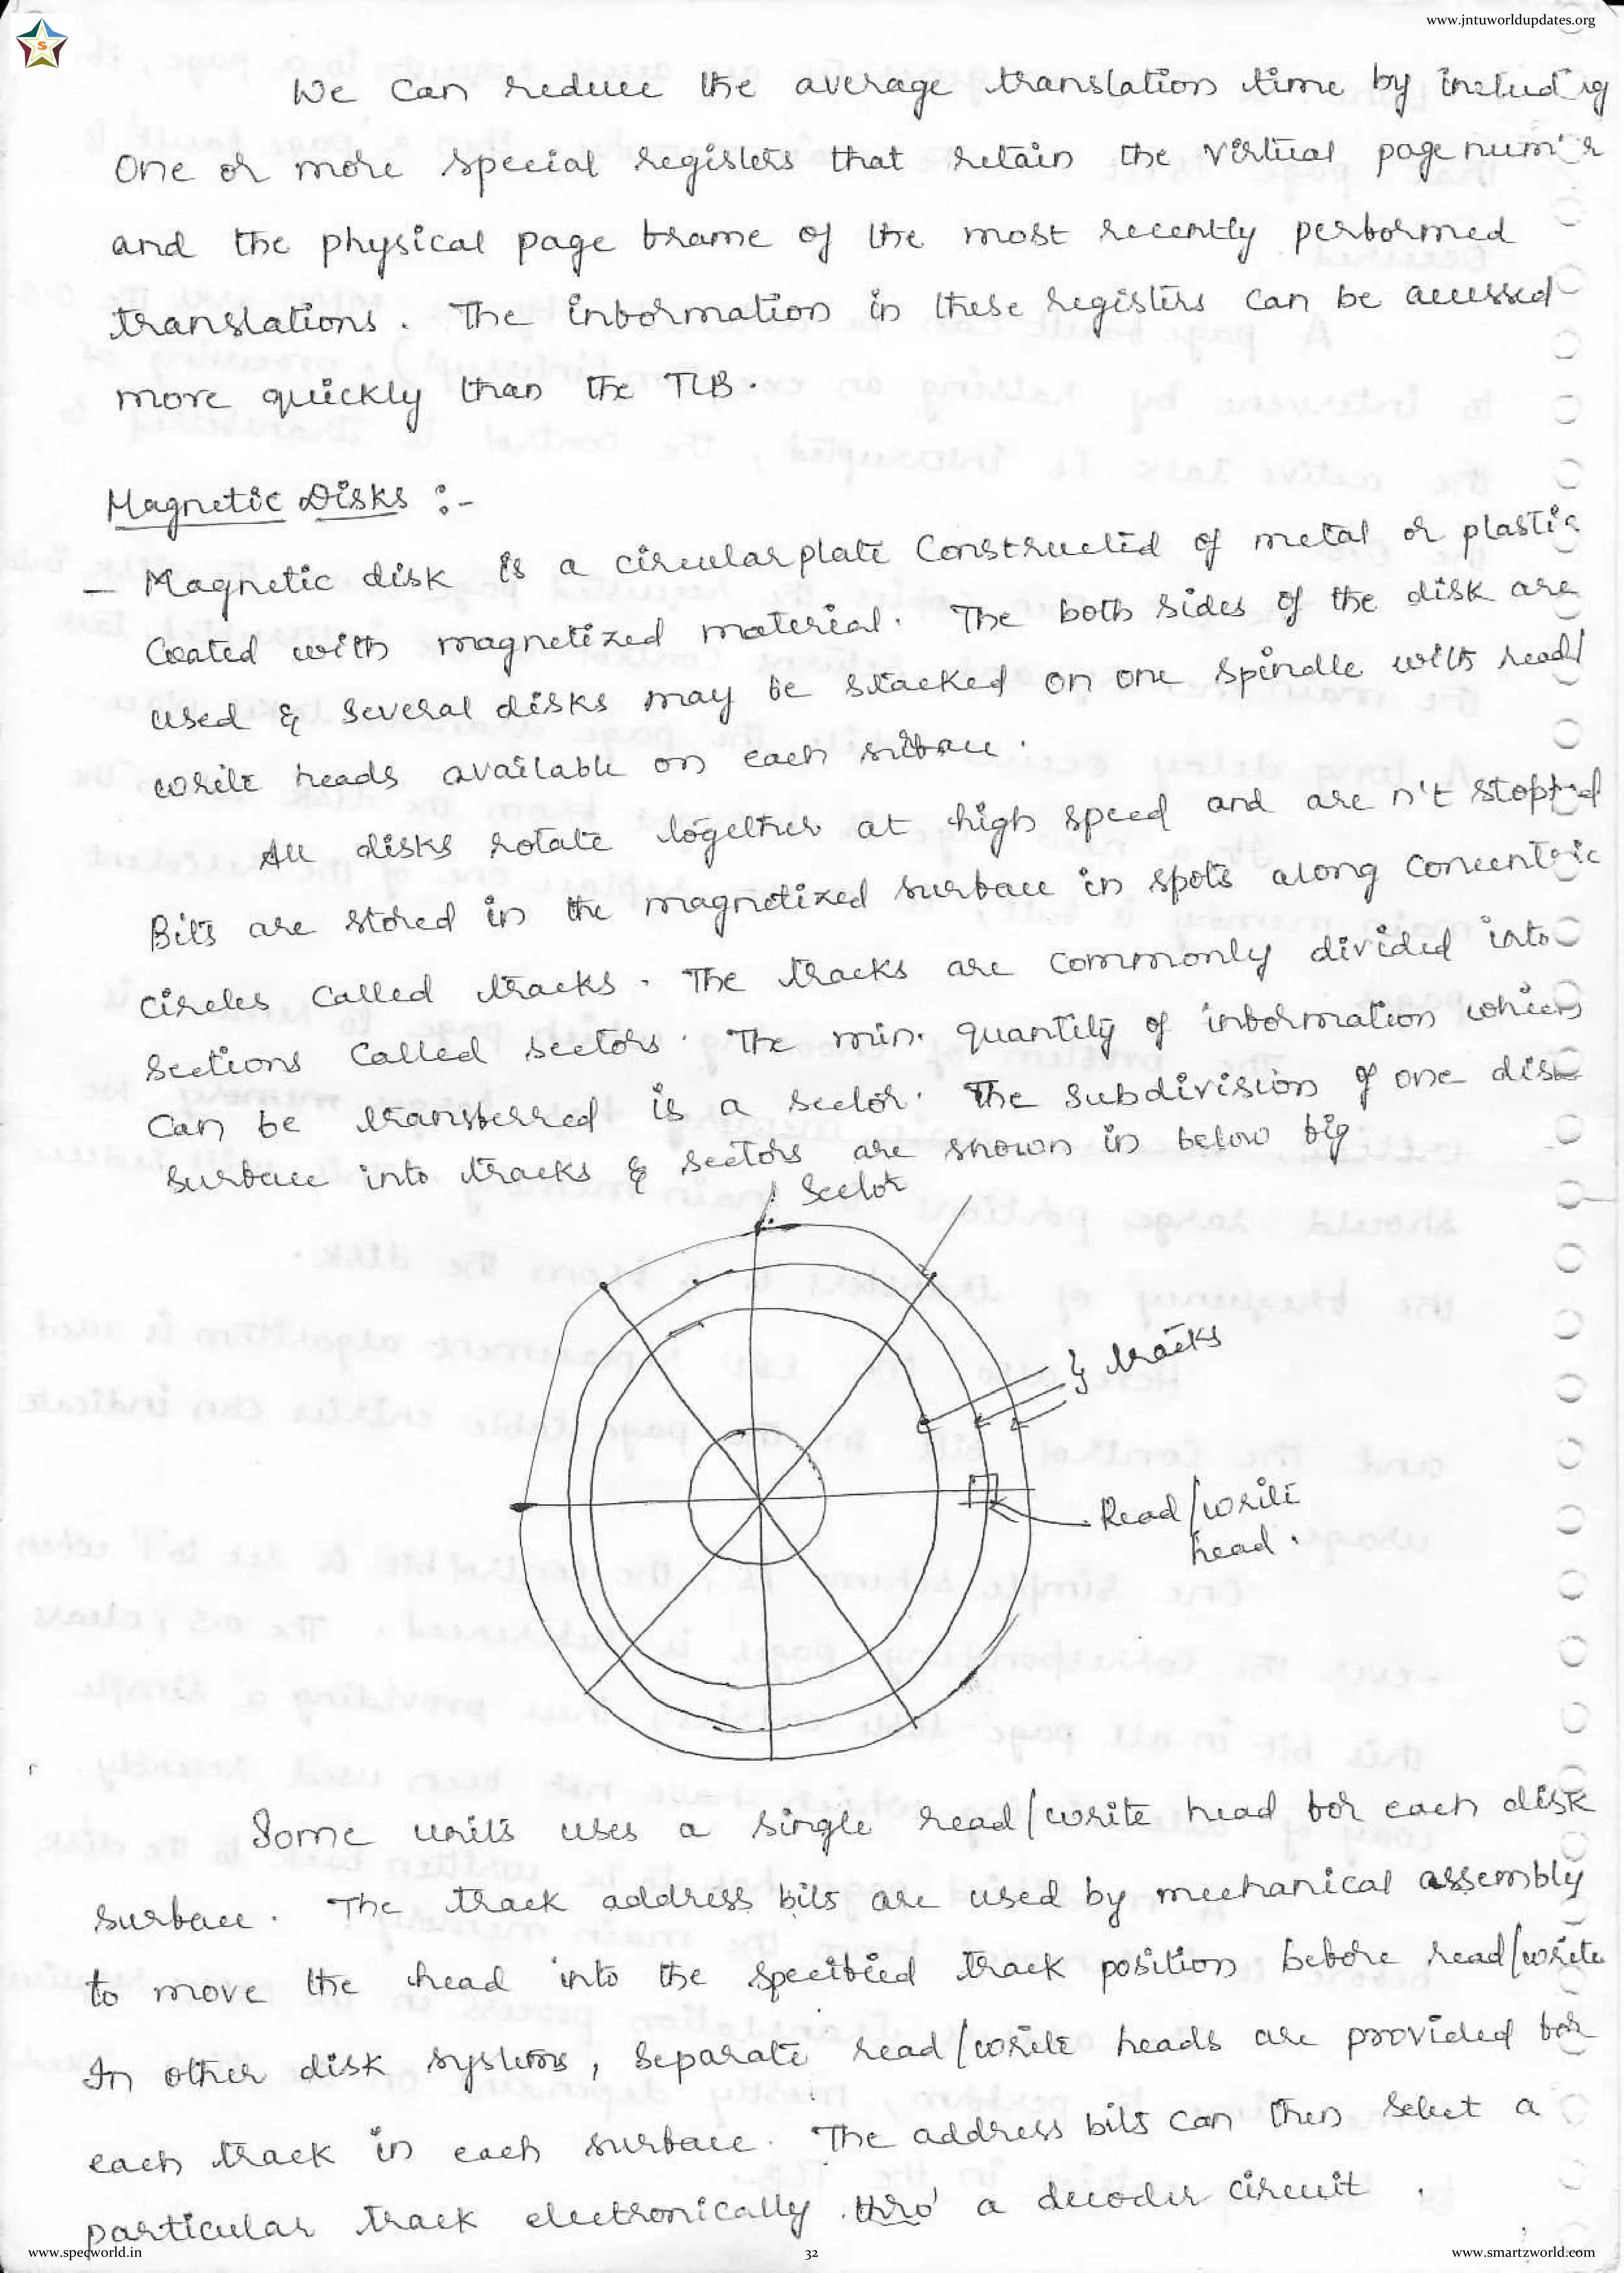 www.jntuworldupdates.org
S
We can reduce the average translation time by including
one or more special registers that retain the virtual page number
and the physical page frame of the most recently performed
translations. The information in these registers can be accessed
more quickly than the TLB.
Magnetic Disks :-
– Magnetic disk is a circular plate constructed of metal or plastic
coated with magnetized material. The both sides of the disk are
used & several disks may be stacked on one spindle with read/
write heads available on each surface.
All disks rotate together at high speed and are n't stopped
Bits are stored in the magnetized surface in spots along concentric
circles called tracks. The tracks are commonly divided into
sections called sectors. The min. quantity of information which
can be transferred is a sector. The subdivision of one disk
surface into tracks & sectors are shown in below fig
Sector
} tracks
Read/write
head.
Some units uses a single read/write head for each disk
surface. The track address bits are used by mechanical assembly
to move the head into the specified track position before read/write
In other disk systems, separate read/write heads are provided for
each track in each surface. The address bits can then select a
particular track electronically thro' a decoder circuit.
www.specworld.in
32
www.smartzworld.com